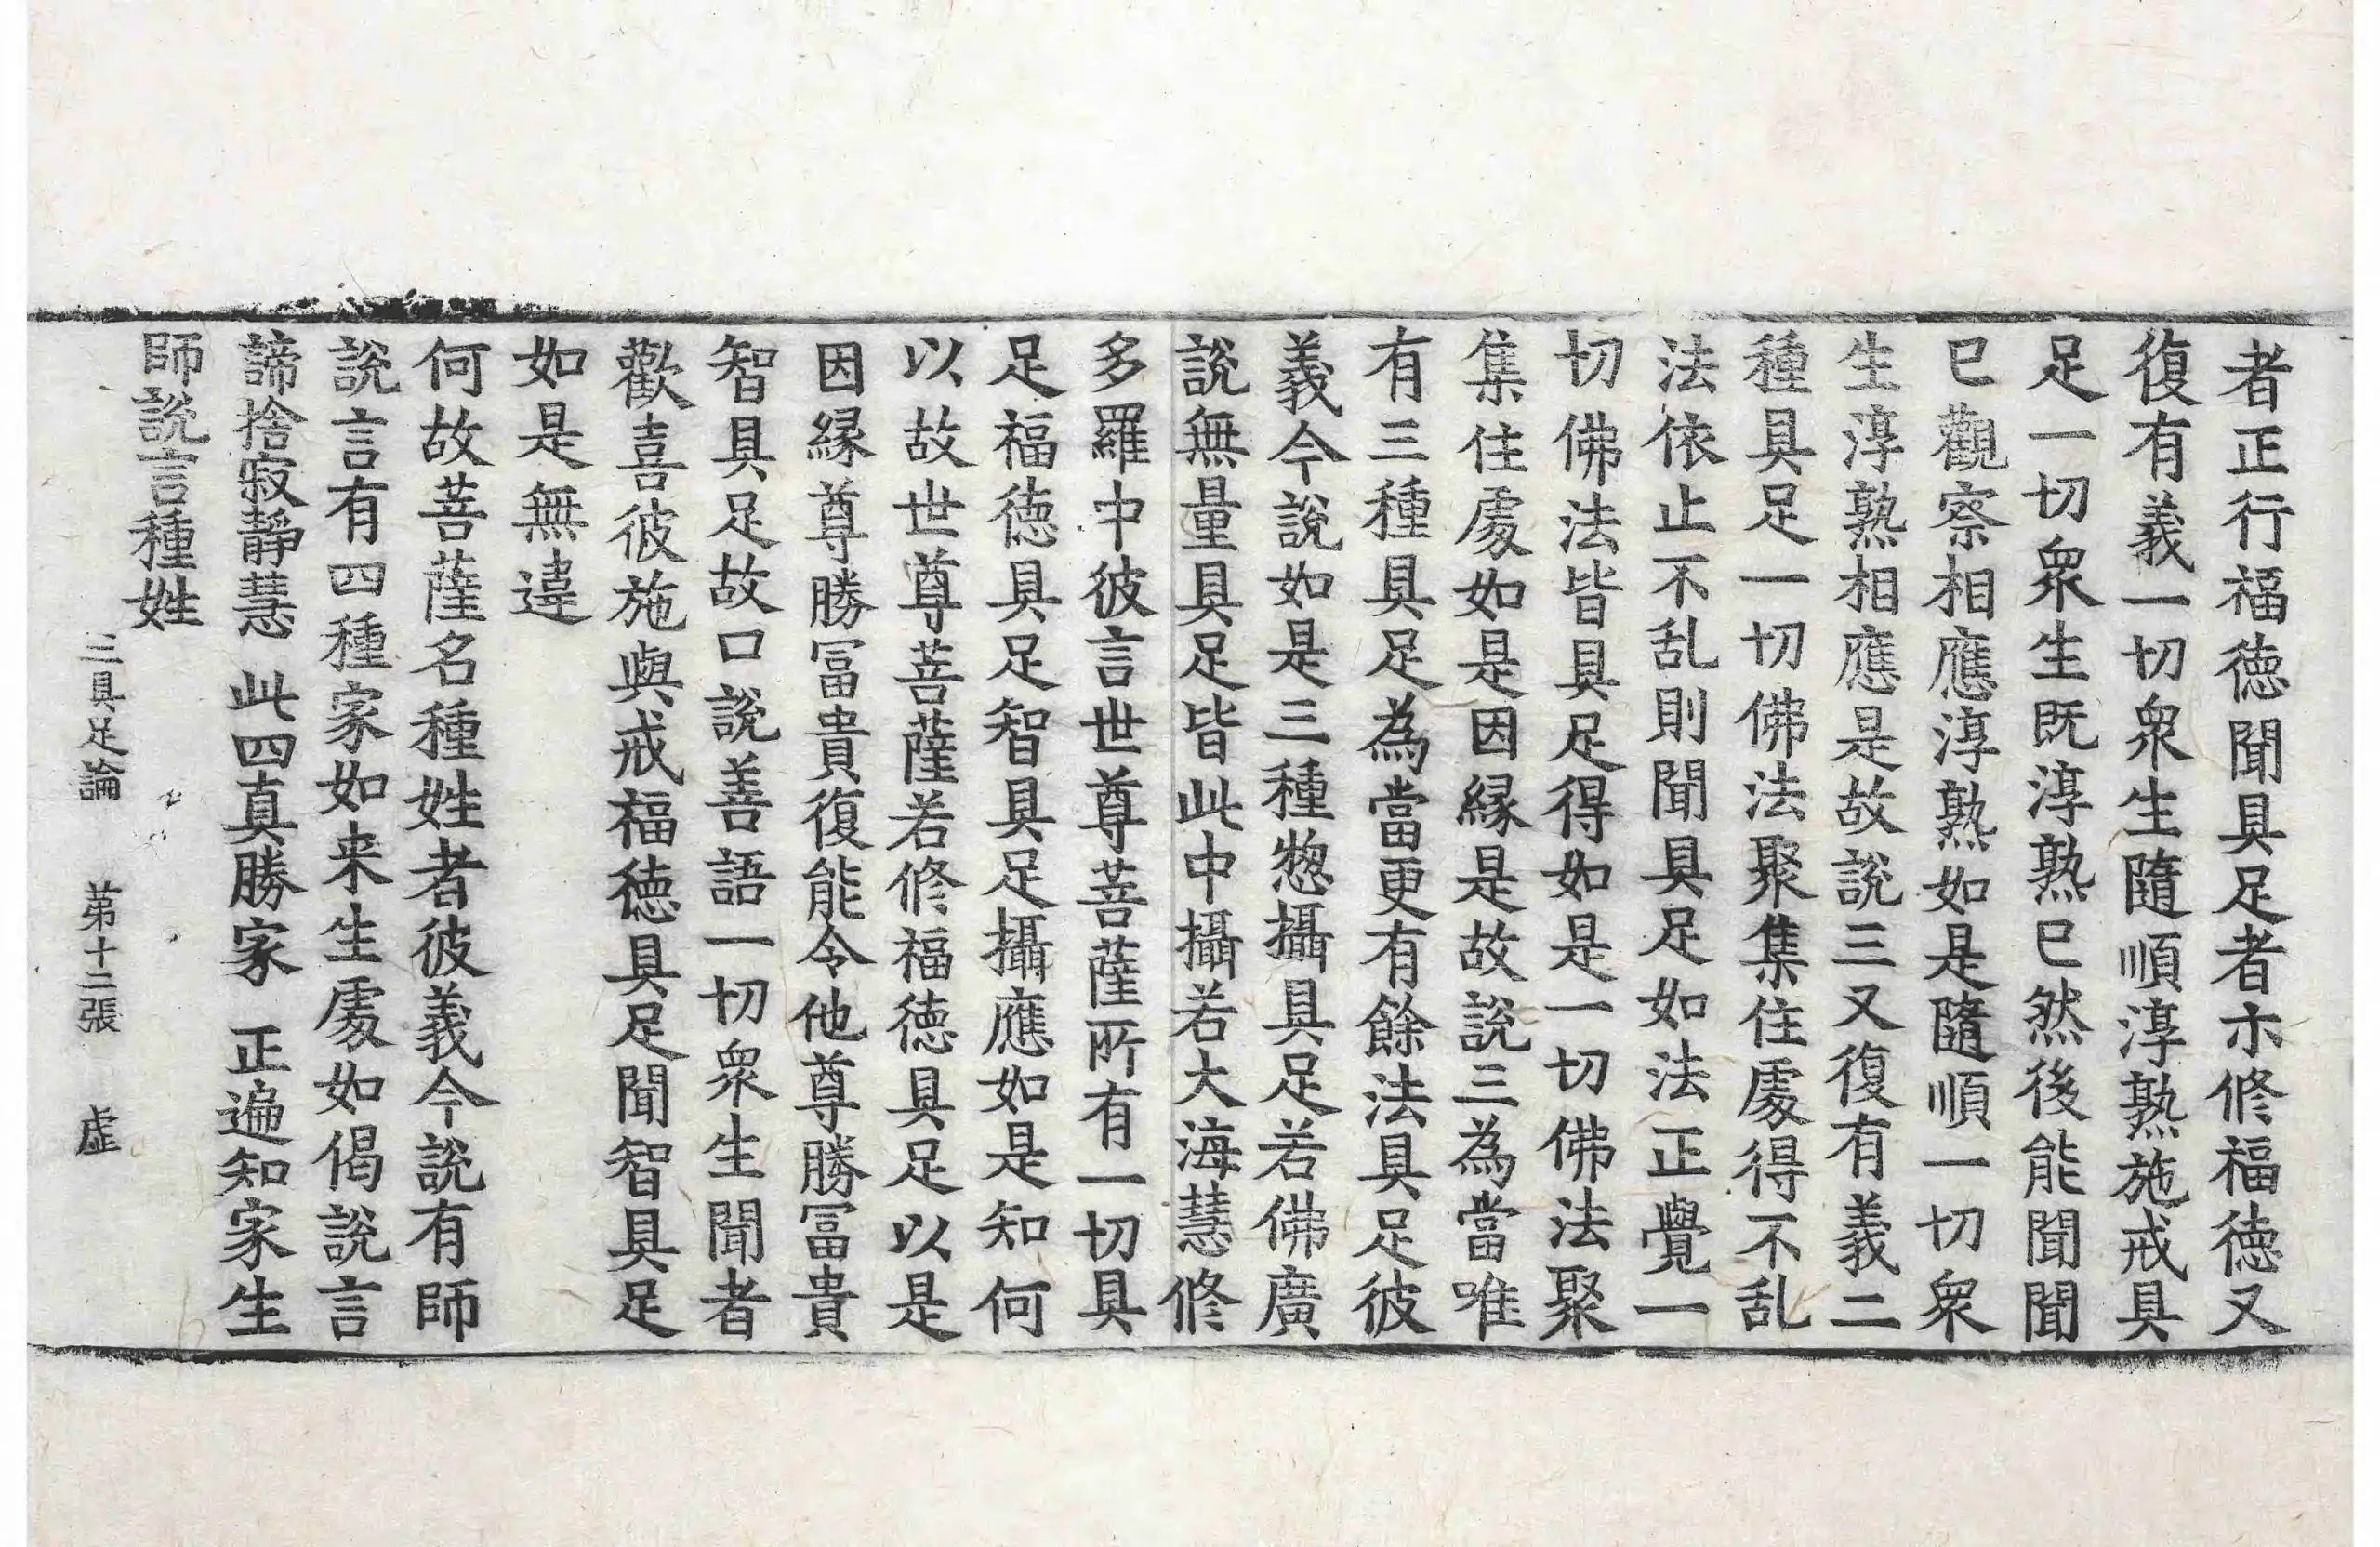 者正行福徳聞具足者亦修福徳又
復有義一切衆生隨順淳熟施戒具
足一切衆生既淳熟已然後能聞聞
已觀察相應淳熟如是隨順一切衆
生淳熟相應是故說三又復有義二
種具足一切佛法聚集住處得不乱
法依止不乱則聞具足如法正覺一
切佛法皆具足得如是一切佛法聚
集住處如是因縁是故說三為當唯
有三種具足為當更有餘法具足彼
義今說如是三種惣攝具足若佛廣
說無量具足皆此中攝若大海慧修
多羅中彼言世尊菩薩所有一切具
足福徳具足智具足攝應如是知何
以故世尊菩薩若修福徳具足以是
因縁尊勝冨貴復能令他尊勝冨貴
智具足故口說善語一切衆生聞者
歡喜彼施與戒福徳具足聞智具足
如是無違
何故菩薩名種姓者彼義今說有師
說言有四種家如来生處如偈說言
諦捨寂靜慧 此四真勝家 正遍知家生
師說言種姓
三具足論 苐十二張 虛